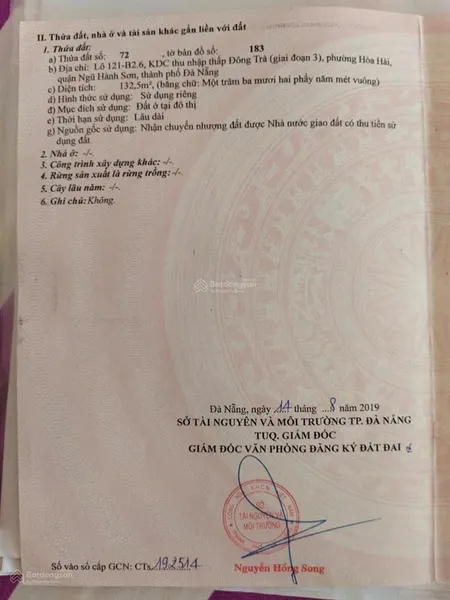 II. Thửa đất, nhà ở và tài sản khác gắn liền với đất
1. Thửa đất:
a) Thửa đất số: 72 , tờ bản đồ số: 183
b) Địa chỉ: Lô 121-B2.6, KDC thu nhập thấp Đông Trà (giai đoạn 3), phường Hòa Hải,
quận Ngũ Hành Sơn, thành phố Đà Nẵng
c) Diện tích: 132,5m², (bằng chữ: Một trăm ba mươi hai phẩy năm mét vuông)
d) Hình thức sử dụng: Sử dụng riêng
đ) Mục đích sử dụng: Đất ở tại đô thị
e) Thời hạn sử dụng: Lâu dài
g) Nguồn gốc sử dụng: Nhận chuyển nhượng đất được Nhà nước giao đất có thu tiền sử
dụng đất
2. Nhà ở: -/-.
3. Công trình xây dựng khác: -/-.
4. Rừng sản xuất là rừng trồng: -/-.
5. Cây lâu năm: -/-.
6. Ghi chú: Không.
Batdongsan
Đà Nẵng, ngày 14 tháng ...8 năm 2019
SỞ TÀI NGUYÊN VÀ MÔI TRƯỜNG TP. ĐÀ NẴNG
TUQ. GIÁM ĐỐC
GIÁM ĐỐC VĂN PHÒNG ĐĂNG KÝ ĐẤT ĐAI
SỞ
TÀI NGUYÊN VÀ
MÔI TRƯỜNG
Số vào sổ cấp GCN: CTs 192514
Nguyễn Hồng Song
Batdongsan